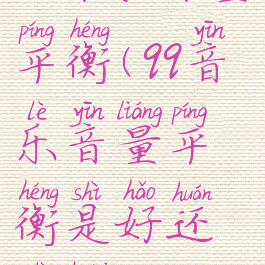 píng héng yīn
平衡(99音
lè yīn liáng píng
乐音量平
héng shì hǎo huán
衡是好还